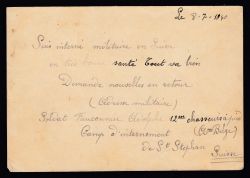 Le 8-7-1940
Suis interné militaire en Suisse
en très bonne santé Tout va bien
Demande nouvelles en retour
(Adresse militaire)
Soldat Fauconnier Adolphe 12me chasseurs à pied
Camp d'internement (Cie Belge)
De St Stephan
Suisse